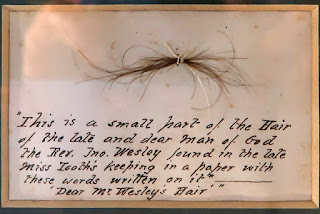 "This is a small part of the Hair
of the late and dear man of God
the Rev. Jno. Wesley found in the late
Miss Tooth's keeping in a paper with
these words written on it"
'Dear Mr. Wesley's Hair'"